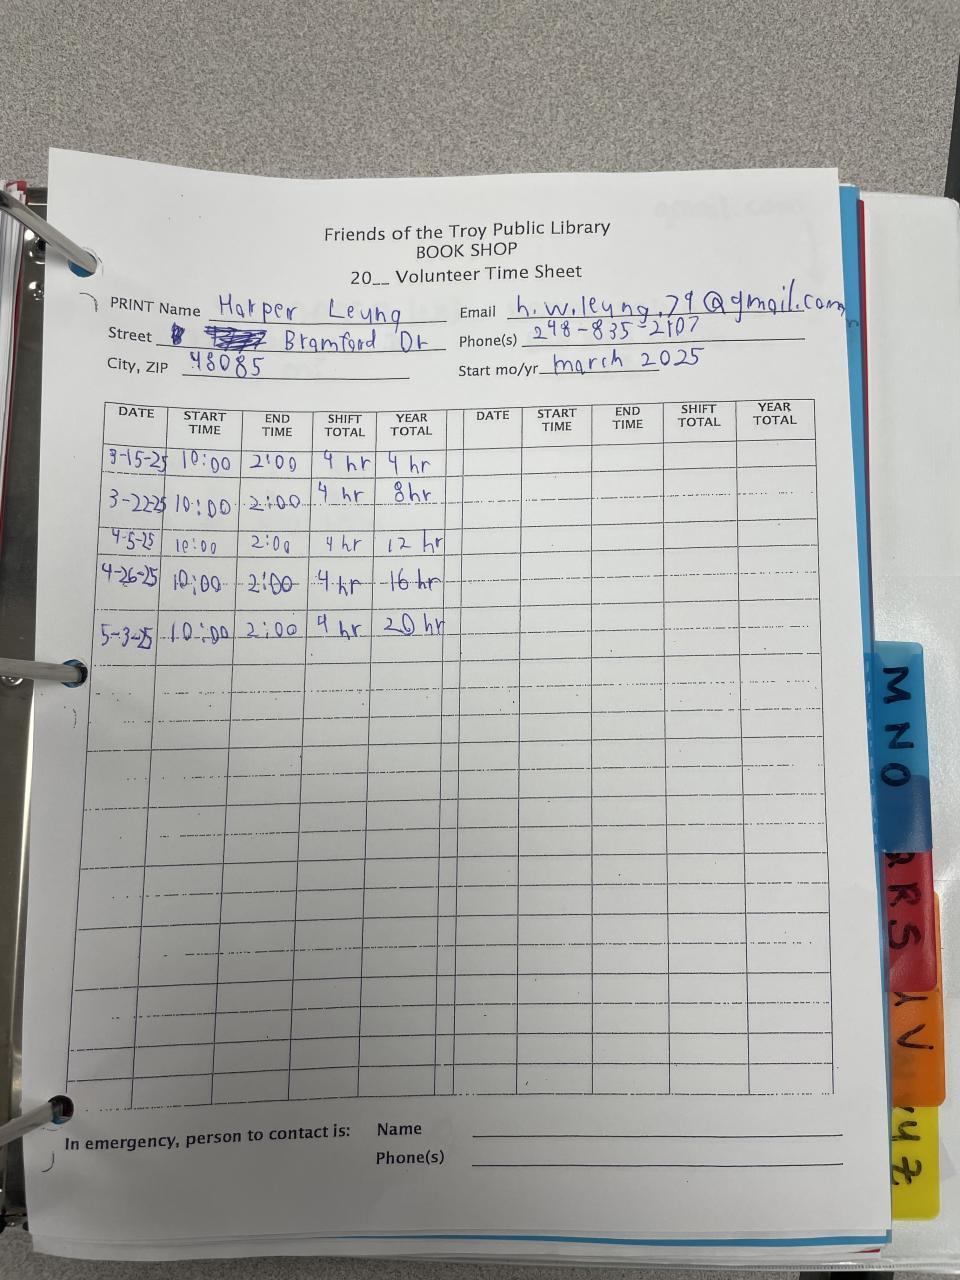 Friends of the Troy Public Library
BOOK SHOP
20__ Volunteer Time Sheet
PRINT Name Harper Leung Email h.w.leung.79@gmail.com
Street Bramford Dr Phone(s) 248-835-2107
City, ZIP 48085 Start mo/yr. march 2025
DATE START TIME END TIME SHIFT TOTAL YEAR TOTAL DATE START TIME END TIME SHIFT TOTAL YEAR TOTAL
3-15-25 10:00 2:00 4 hr 4 hr
3-22-25 10:00 2:00 4 hr 8hr
4-5-25 10:00 2:00 4 hr 12 hr
4-26-25 10:00 2:00 4 hr 16 hr
5-3-25 10:00 2:00 4 hr 20 hr
In emergency, person to contact is: Name
Phone(s)
M N O
R S
V
Z